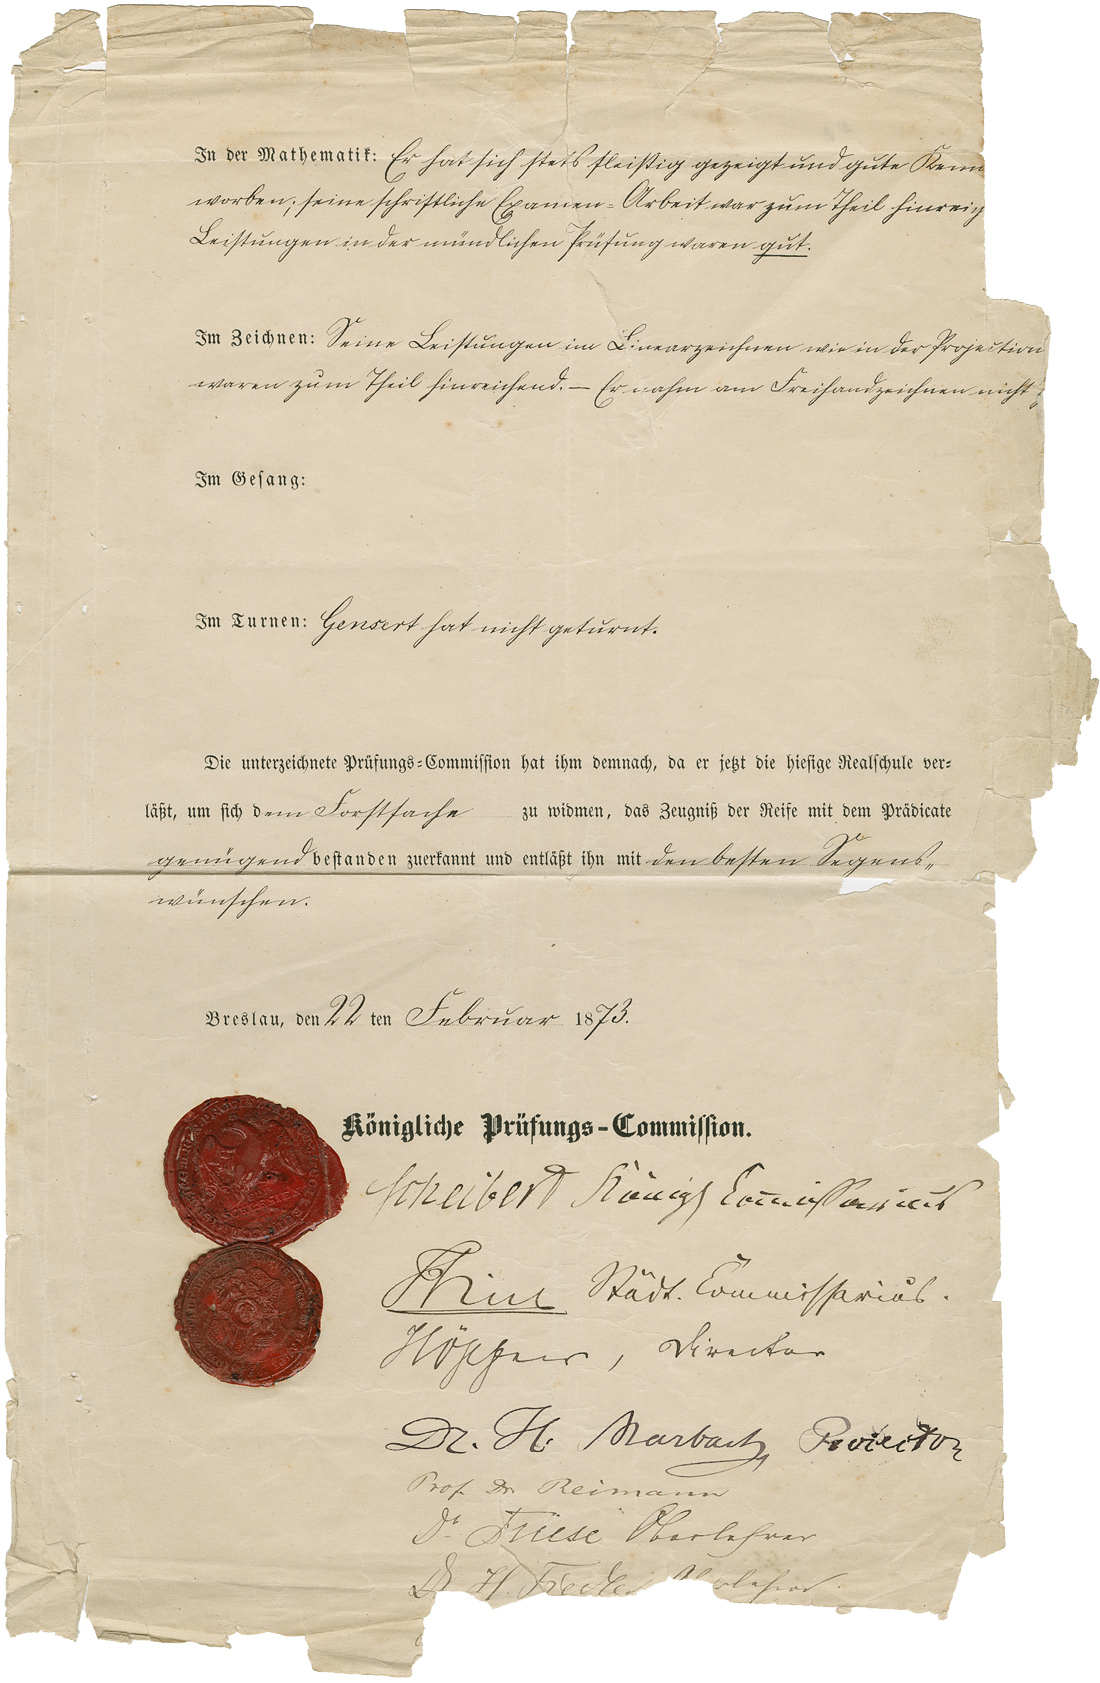 In der Mathematik: Er hat sich stets fleißig gezeigt und gute Kenn
worben; seine schriftliche Examen-Arbeit war zum Theil hinreich
Leistungen in der mündlichen Prüfung waren gut.
Im Zeichnen: Seine Leistungen im Linearzeichnen wie in der Projection
waren zum Theil hinreichend. — Er nahm am Freihandzeichnen nicht
Im Gesang:
Im Turnen: Gensert hat nicht geturnt.
Die unterzeichnete Prüfungs-Commission hat ihm demnach, da er jetzt die hiesige Realschule ver-
läßt, um sich dem Forstfache zu widmen, das Zeugniß der Reife mit dem Prädicate
genügend bestanden zuerkannt und entläßt ihn mit den besten Segens-
wünschen.
Breslau, den 22 ten Februar 1873.
Königliche Prüfungs-Commission.
Scheibert Königl Commissarius
Städt. Commissarius.
Director
Dr. H. Marbach, Prorector
Prof. Dr. Reimann
Dr Friese Oberlehrer
Dr H. Fiedle Oberlehrer